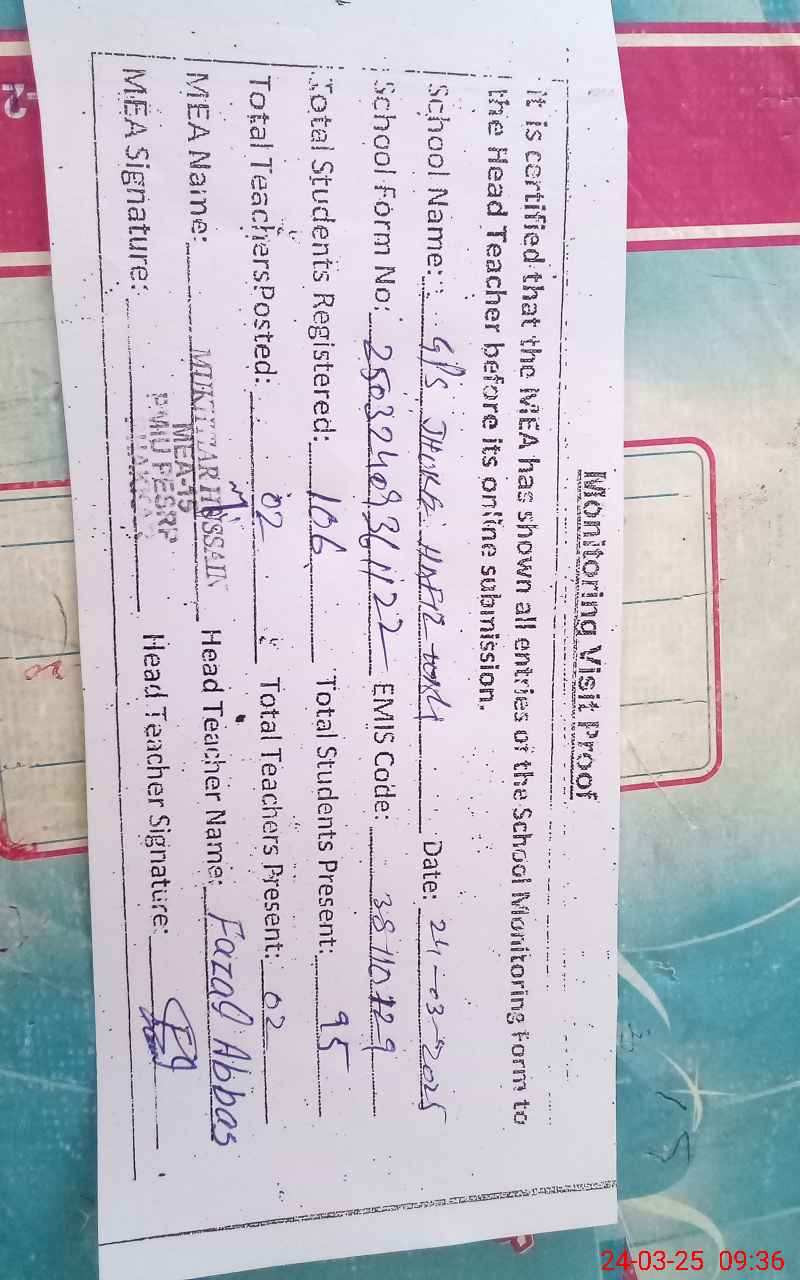 Monitoring Visit Proof
It is certified that the MEA has shown all entries of the School Monitoring Form to
the Head Teacher before its online submission.
School Name: GPS JHOKE HAFIZ Date: 24-03-2025
School Form No: EMIS Code: 38110729
Total Students Registered: 106 Total Students Present: 95
Total Teachers Posted: 02 Total Teachers Present: 02
MEA Name: MUKHTAR HUSSAIN Head Teacher Name: Fazal Abbas
MEA-15
MEA Signature: PMIU PESRP Head Teacher Signature:
24-03-25 09:36